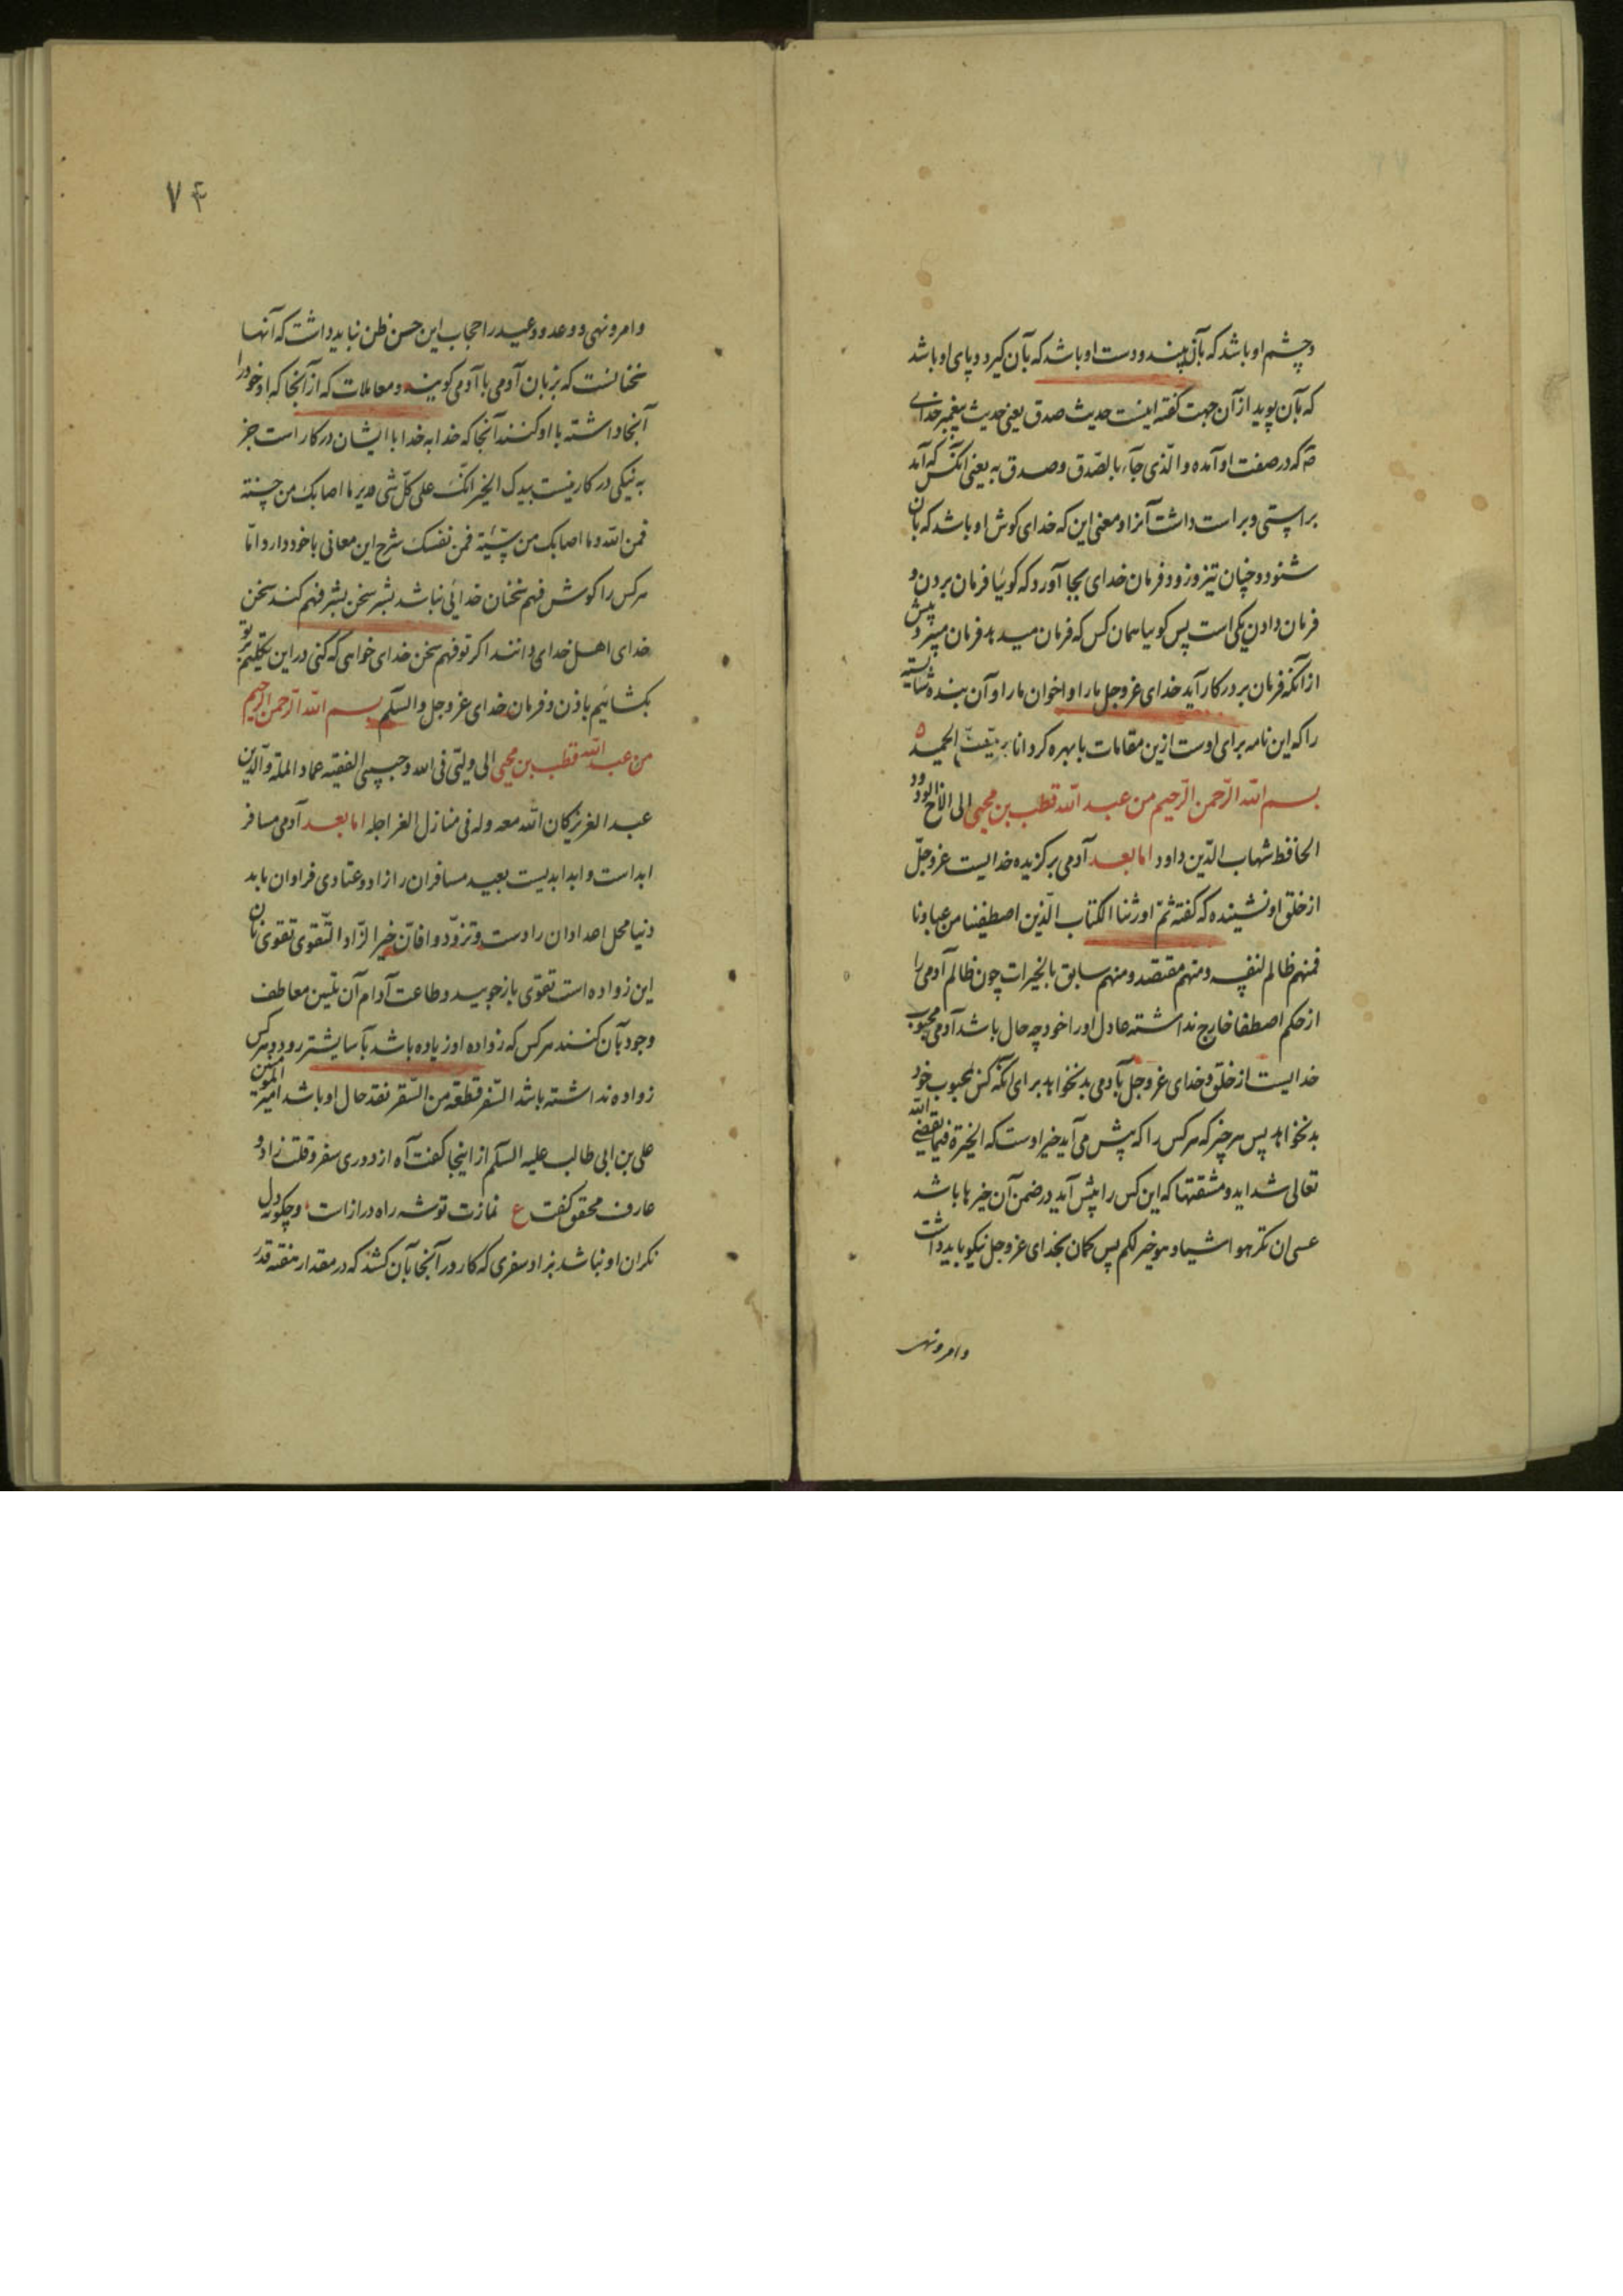 و چشم او باشد که بآن بیند و دست او باشد که بآن گیرد و پای او باشد
که بآن پوید از آن جهت گفته اینست حدیث صدق یعنی حدیث پیغمبر خدای
که در صفت او آمده و الّذی جآء بالصّدق و صدق به یعنی آنکس که آمد
براستی و براست داشت آنرا و معنی این که خدای گوش او باشد که بآن
شنود و چنان تیز و زود فرمان خدای بجا آورد که گوئیا فرمان بردن و
فرمان دادن یکی است پس گوییا همان کس که فرمان میدهد فرمان میبرد و پیش
از آنکه فرمان بر در کار آید خدای عزوجل ما را و اخوان ما را و آن بنده شایسته
را که این نامه برای اوست ازین مقامات با بهره کرداناد الحمید ه
بسم الله الرّحمن الرّحیم من عبد الله قطب بن محیی الی الاخ الودود
الحافظ شهاب الدّین داود اما بعد آدمی برگزیده خدایست عزوجلّ
از خلق او نشنیده که گفته ثمّ اورثنا الکتاب الّذین اصطفینا من عبادنا
فمنهم ظالم لنفسه و منهم مقتصد و منهم سابق بالخیرات چون ظالم آدمی را
از حکم اصطفا خارج نداشته عادل او را خود چه حال باشد آدمی محبوب
خدایست از خلق و خدای عزوجل بآدمی بد نخواهد برای آنکه کس بمحبوب خود
بد نخواهد پس هر چیز که هر کس را که پیش می آید خیر اوست که الخیرة فیما یقضی الله
تعالی شداید و مشقتها که این کس را پیش آید در ضمن آن خیرها باشد
عسی ان تکرهوا شیا و هو خیر لکم پس گمان بخدای عزوجل نیکو باید داشت
و امر و نهی
۷۴
و امر و نهی و وعد و وعید را حجاب این حسن ظن نباید داشت که آنها
سخنانست که بزبان آدمی با آدمی گویند و معاملات که از آنجا که او خود را
آنجا داشته با او کنند آنجا که خدا به خدا با ایشان در کار است جز
به نیکی در کار نیست بیدک الخیر انّک علی کلّ شی قدیر ما اصابک من حسنة
فمن الله و ما اصابک من سیّئة فمن نفسک شرح این معانی با خود دارد امّا
هر کس را گوش فهم سخنان خدائی نباشد بشر سخن بشر فهم کند سخن
خدای اهل خدای دانند اگر تو فهم سخن خدای خواهی که کنی در این تکلیم بر تو
بگشائیم باذن و فرمان خدای عزوجل والسّلم بسم الله الرّحمن الرّحیم
من عبد الله قطب بن محیی الی ولیّی فی الله و حبیبی الفقیه عماد الملّة و الدّین
عبد العزیز کان الله معه و له فی منازل العز اجله اما بعد آدمی مسافر
ابد است و ابد ابدیست بعید مسافران را زاد و عتادی فراوان باید
دنیا محل اعداد آن زاد است و تزوّدوا فانّ خیر الزّاد التّقوی تقوی نان
این زواده است تقوی باز جویید و طاعت آدام آن تلیین معاطف
وجود بآن کنند هر کس که زواده او زیاده باشد بآسایشتر رود و هر کس
زواده نداشته باشد السّفر قطعة من السّقر نقد حال او باشد امیر المومنین
علی بن ابی طالب علیه السّلم از اینجا گفت آه از دوری سفر و قلت زاد و
عارف محقق گفت ع نمازت توشه راه دراز است و چگونه دل
نگران او نباشد بزاد سفری که کار در آنجا بآن کشد که در مقدار هفته قدر